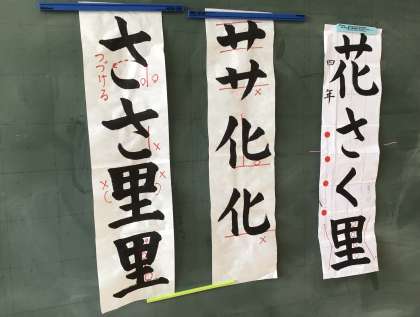 花さく里
四年
サササ化化
ささ里里
つづける